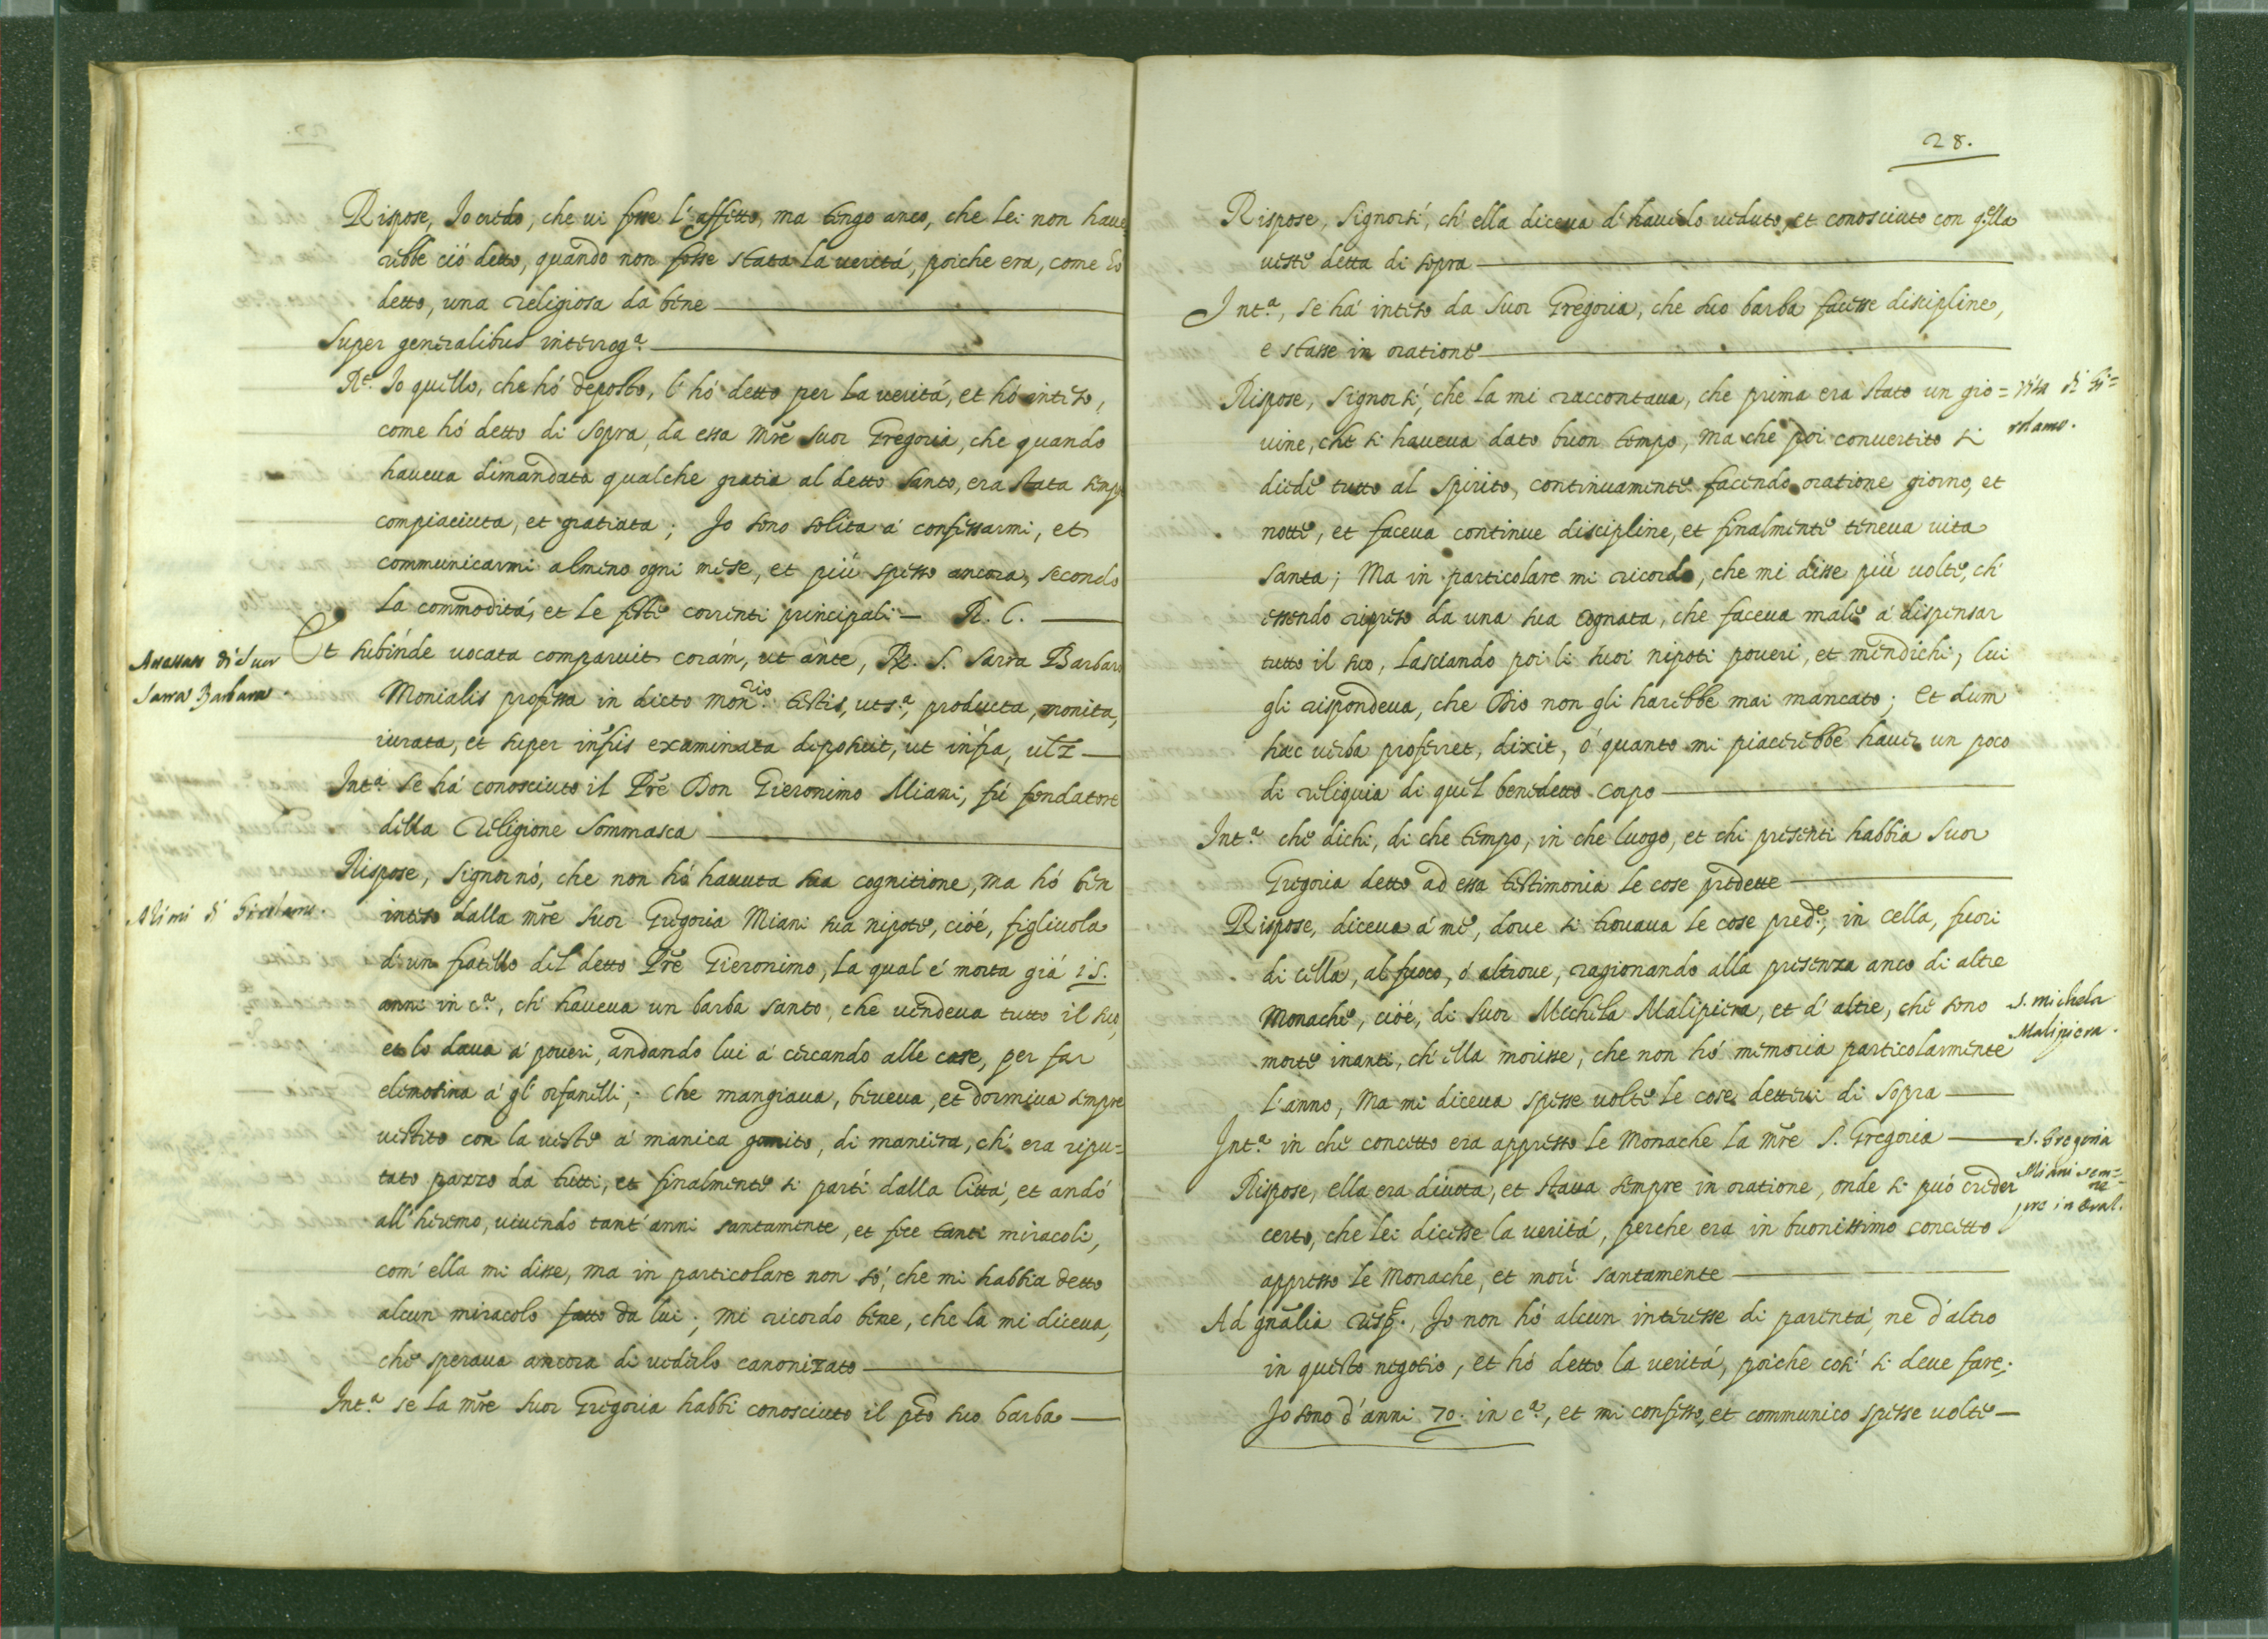 Rispose, Io credo, che ui fosse l'affetto, ma tengo anco, che lei non haue
rebbe ció detto, quando non fosse stata la veritá, poiche era, come hó
detto, una religiosa da bene
Super generalibus interrog.ª
R.t Io quello, che hó deposto, l'hó detto per la veritá, et hó inteso,
come hó detto di sopra, da essa Mre Suor Gregoria, che quando
haueua dimandata qualche gratia al detto Santo, era stata sempre
compiaciuta, et gratiata; Io sono solita á confessarmi, et
communicarmi almeno ogni mese, et piú spesso ancora, secondo
la commoditá, et le feste correnti principali — R. C.
Et subinde uocata comparuit corám, ut ante, S. Sarra Barbaro
Sarra Barbara.
Monialis professa in dicto Mon.rio testis, uts.ª, producta, monita,
iurata, et super infris examinata deposuit, ut infra, ulz
Int.ª se há conosciuto il Pre Don Gieronimo Miani, fú fondatore
della Religione Sommasca
Rispose, Signornó, che non hó hauuta sua cognitione, ma hó ben
inteso dalla Mre Suor Gregoria Miani sua nipote, cioé, figliuola
d'un fratello del detto Pre Gieronimo, la qual é morta giá 15.
anni in c.ª, ch' haueua un barba santo, che uendeua tutto il suo,
et lo daua á poueri, andando lui á cercando alle case, per far
elemosina á gl' orfanelli; che mangiaua, beueua, et dormiua sempre
uestito con la ueste á manica gomito, di maniera, ch' era ripu=
tato pazzo da tutti, et finalmente si partí dalla Cittá, et andó
all' heremo, uiuendo tant' anni santamente, et fece tanti miracoli,
com' ella mi disse, ma in particolare non só, che mi habbia detto
alcun miracolo fatto da lui; mi ricordo bene, che la mi diceua,
che speraua ancora di uederlo canonizato
Int.ª se la Mre Suor Gregoria habbi conosciuto il pto suo barba
28.
Rispose, Signorsí, ch' ella diceua d' hauerlo ueduto, et conosciuto con qella
ueste detta di sopra
Int.ª, se há inteso da Suor Gregoria, che suo barba facesse discipline,
e stasse in oratione
Rispose, Signorsí, che la mi raccontaua, che prima era stato un gio=
Vita di Gi=
rolamo.
uine, che si haueua dato buon tempo, ma che poi conuertito si
diede tutto al Spirito, continuamente facendo oratione giorno, et
notte, et faceua continue discipline, et finalmente teneua uita
santa; Ma in particolare mi ricordo, che mi disse piú uolte, ch'
essendo ripreso da una sua cognata, che faceua male á dispensar
tutto il suo, lasciando poi li suoi nipoti poueri, et mendichi, lui
gli rispondeua, che Dio non gli harebbe mai mancato; Et dum
hac uerba proferret, dixit, ó quanto mi piacerebbe hauer un poco
di reliquia di quel benedetto corpo
Int.ª che dichi, di che tempo, in che luogo, et chi presenti habbia Suor
Gregoria detto ad essa testimonia le cose predette
Rispose, diceua á me, doue si trouaua le cose pred.e, in cella, fuori
di cella, al fuoco, ó altroue, ragionando alla presenza anco di altre
Monache, cioé, di Suor Michela Malipiera, et d' altre, che sono
S. Michela
Malipiera.
morte inanti, ch' ella morisse, che non hó memoria particolarmente
l'anno, ma mi diceua spesse uolte le cose dette di sopra
Int.ª in che concetto era appresso le Monache la Mre S. Gregoria
S. Gregoria
Miani sem=
pre in oral.ne
Rispose, ella era diuota, et staua sempre in oratione, onde si puó creder
certo, che lei dicesse la veritá, perche era in buonissimo concetto
appresso le Monache, et morí santamente
Ad gnalia resp., Io non hó alcun interesse di parentá, ne d'altro
in questo negotio, et hó detto la veritá, poiche cosí si deue fare;
Io sono d'anni 70. in c.ª, et mi confesso, et communico spesse uolte